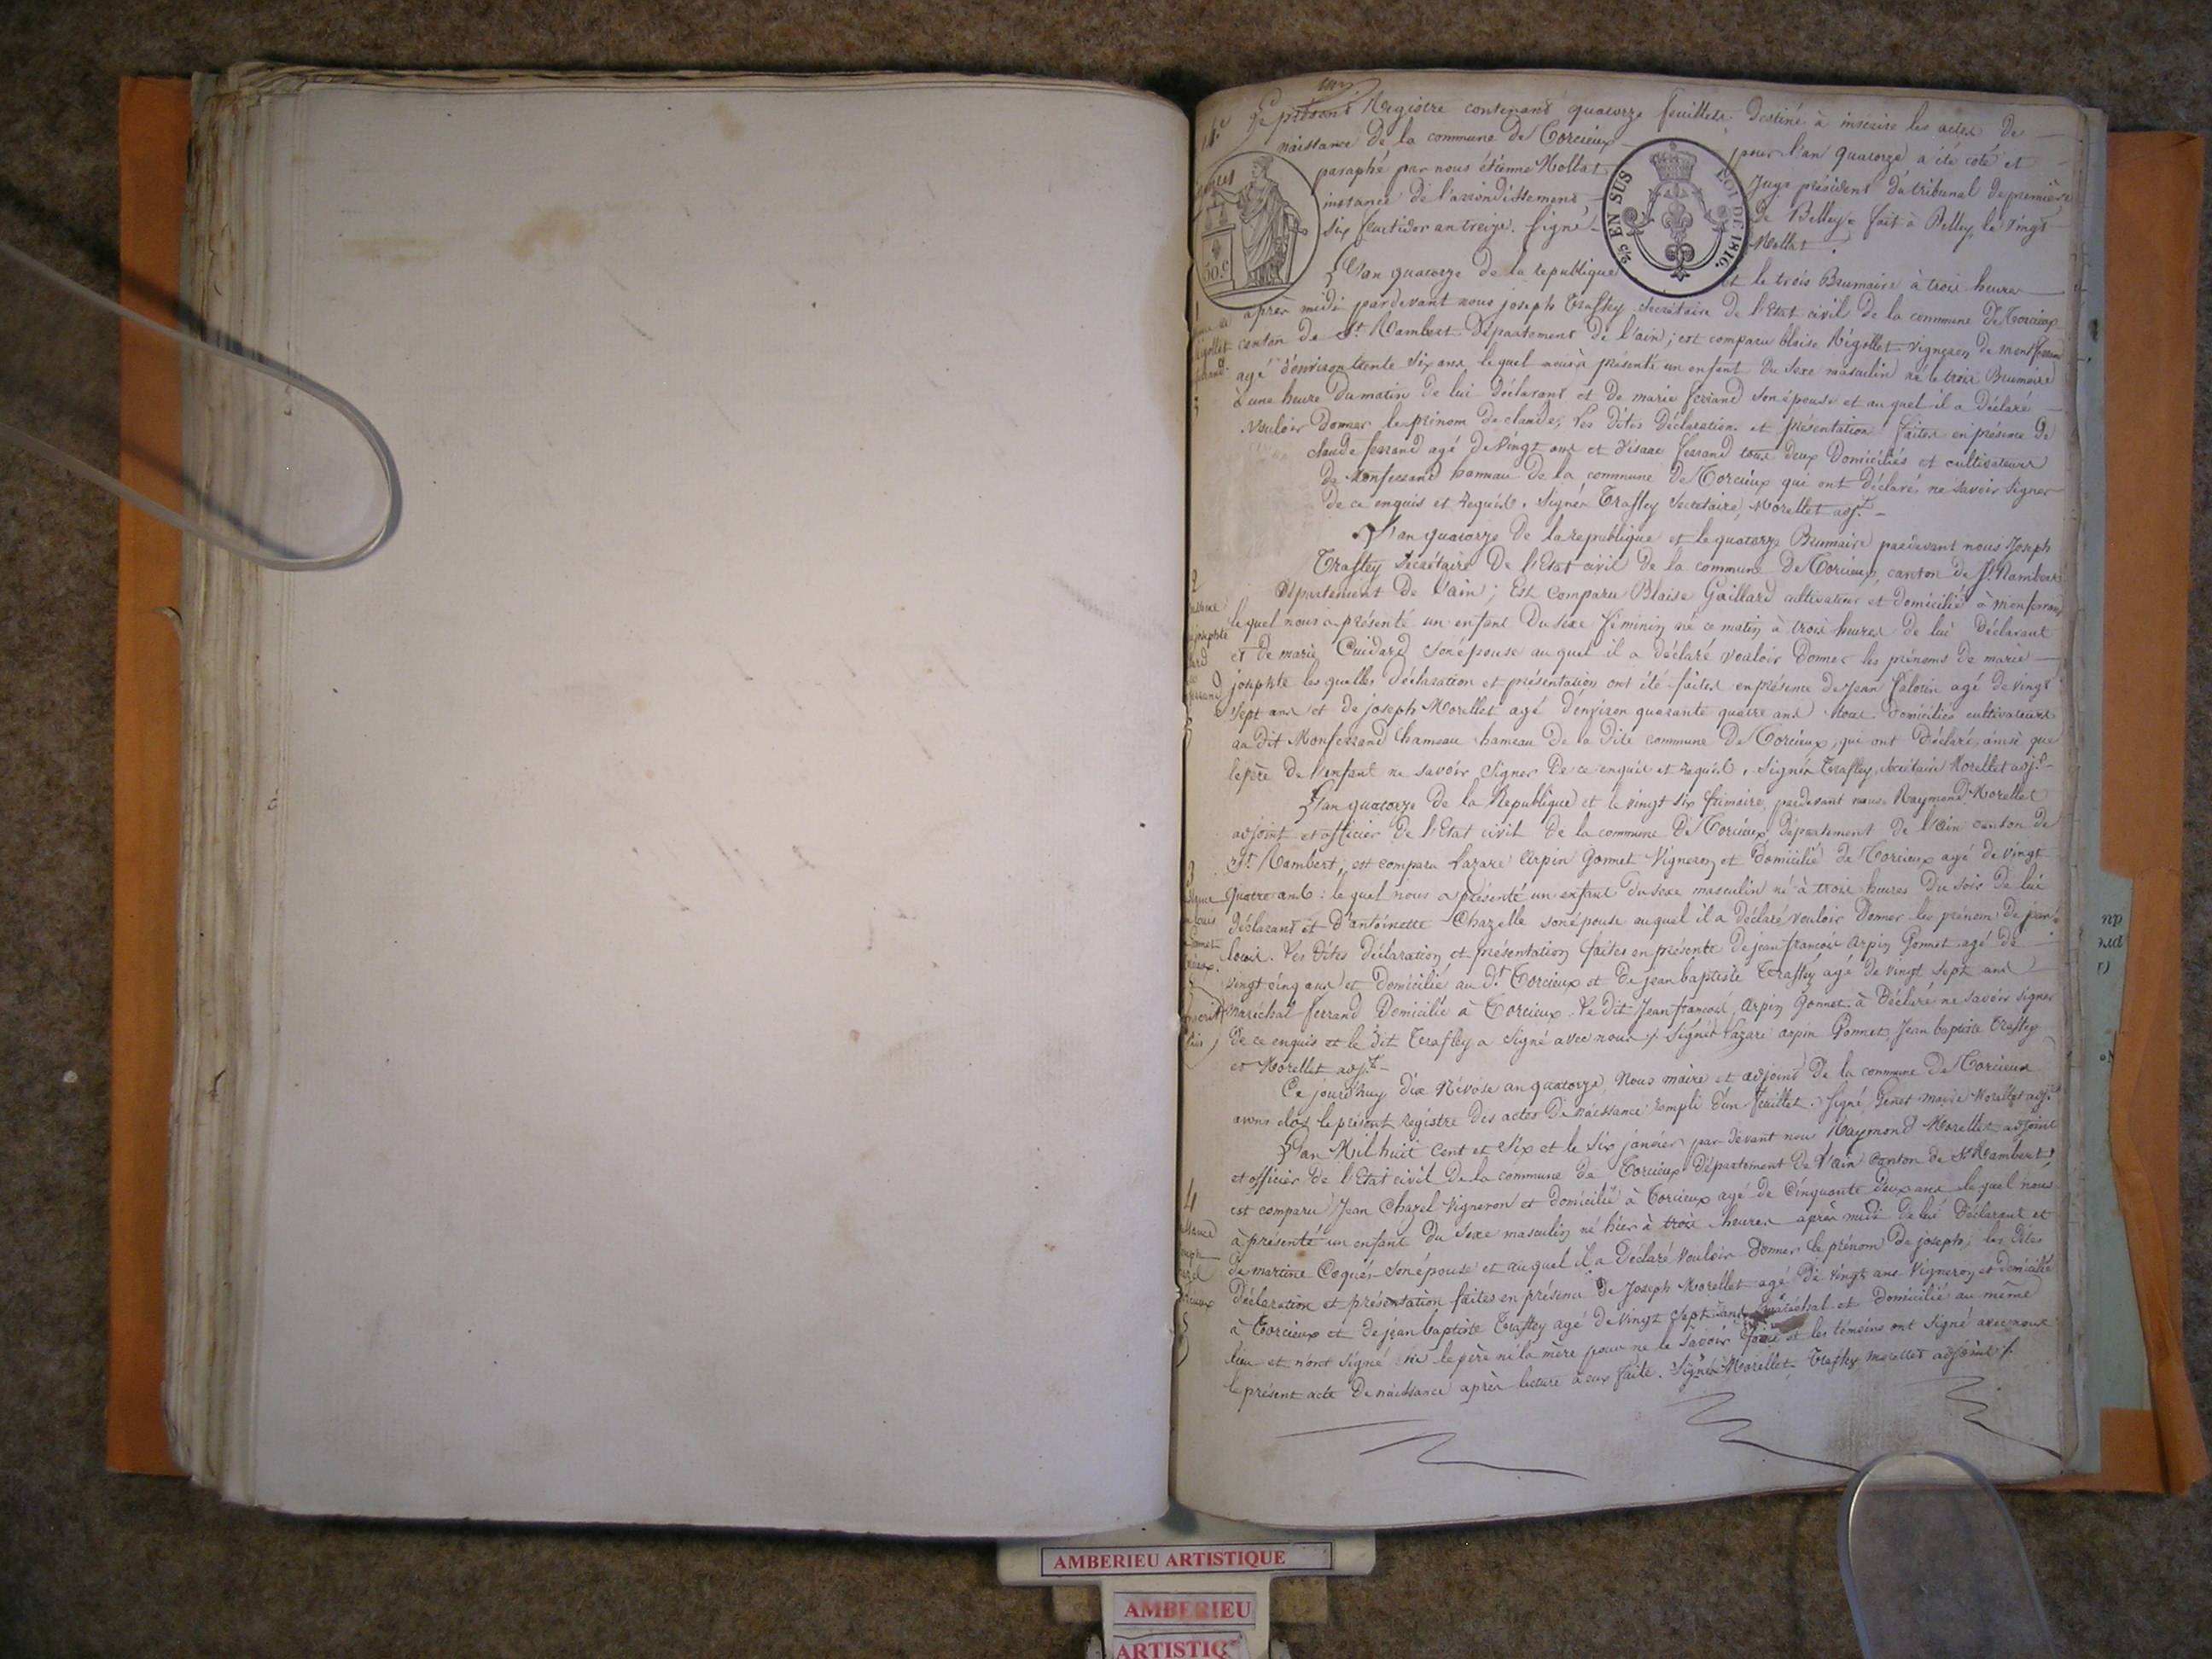 Le présent Registre contenant quatorze feuillets destiné à inscrire les actes de
naissance de la commune de Torcieux pour l'an quatorze a été coté et
paraphé par nous étienne Mollat Juge président du tribunal de première
instance de l'arrondissement de Belley. fait à Belley, le vingt
six fructidor an treize. Signé Mollat.
50.c
2/5 EN SUS
LOI DE 1816.
L'an quatorze de la republique et le trois Brumaire à trois heures
après midi pardevant nous joseph Trafley secrétaire de l'Etat civil de la commune De Torcieux
canton de St. Rambert Département de l'ain; est comparu blaise Rigollet vigneron de montferrand
agé d'environ trente six ans lequel nous à présenté un enfant du sexe masculin né le trois Brumaire
à une heure du matin de lui déclarant et de marie ferrand son épouse et auquel il a déclaré
vouloir donner le prénom de claude, Les dites déclaration et présentation faites en présence de
claude ferrand agé de vingt ans et d'isaac ferrand tous deux Domiciliés et cultivateurs
de Monferrand hameau de la commune de Torcieux qui ont déclaré ne savoir signer
de ce enquis et requis. Signés Trafley secretaire, Morellet adjt.
L'an quatorze de la republique et le quatorze Brumaire pardevant nous Joseph
2
Trafley secrétaire De l'Etat civil de la commune de Torcieux, canton de St. Rambert
département de l'ain; Est comparu Blaise Gaillard cultivateur et domicilié à Monferrand
lequel nous a présenté un enfant du sexe féminin né ce matin à trois heures de lui déclarant
et de marie Cuidard son épouse auquel il a déclaré vouloir donner les prénoms de marie
josephte les quelles déclaration et présentation ont été faites en présence de jean agé de vingt
sept ans et de joseph Morellet agé d'environ quarante quatre ans tous domiciliés cultivateurs
au dit Monferrand hameau hameau de la dite commune De Torcieux, qui ont déclaré ainsi que
le père de l'enfant ne savoir signer de ce enquis et requis. Signés Trafley, secrétaire Morellet adjt.
L'an quatorze de la Republique et le vingt six frimaire, pardevant nous Raymond Morellet
adjoint et officier de l'Etat civil de la commune de Torcieux Département de l'ain canton de
3
St. Rambert, est comparu Lazare Arpin Gonnet Vigneron et domicilié de Torcieux agé de vingt
quatre ans: lequel nous a présenté un enfant du sexe masculin né à trois heures du soir de lui
déclarant et d'antoinette Chazelle son épouse auquel il a déclaré vouloir donner les prénom de jean
louis. Les dites déclaration et présentation faites en présente de jean françois Arpin Gonnet agé de
vingt cinq ans et domicilié au dt. Torcieux et de jean baptiste Trafley agé de vingt sept ans
maréchal ferrand Domicilié à Torcieux Le dit Jean françois Arpin Gonnet à déclaré ne savoir signer
de ce enquis et le dit Trafley a signé avec nous. Signés Lazare arpin Gonnet, Jean baptiste Trafley
et Morellet adjt.
Ce jourd'huy dix Nivôse an quatorze, Nous maire et adjoint de la commune de Torcieux
avons clos le présent registre des actes de naissance rempli d'un feuillet. Signé Genet maire Morellet adjt.
L'an Mil huit Cent et Six et le Six janvier par devant nous Raymond Morellet adjoint
et officier de l'Etat civil de la commune de Torcieux département de l'ain Canton de St. Rambert,
4
est comparu Jean Chazel Vigneron et domicilié à Torcieux agé de Cinquante deux ans lequel nous
à présenté un enfant du Sexe masculin né hier à trois heures après midi de lui déclarant et
de martine Coquer son épouse et auquel il a déclaré vouloir donner le prénom de joseph; les dites
déclaration et présentation faites en présence de Joseph Morellet agé de vingt ans Vigneron et domicilié
à Torcieux et de jean baptiste Trafley agé de vingt sept ans maréchal et domicilié au même
lieu et n'ont signé ni le père ni la mère pour ne le savoir faire et les témoins ont signé avec nous
le présent acte de naissance après lecture à eux faite. Signés Morellet Trafley Morellet adjoint
AMBERIEU ARTISTIQUE
AMBERIEU
ARTISTIQ